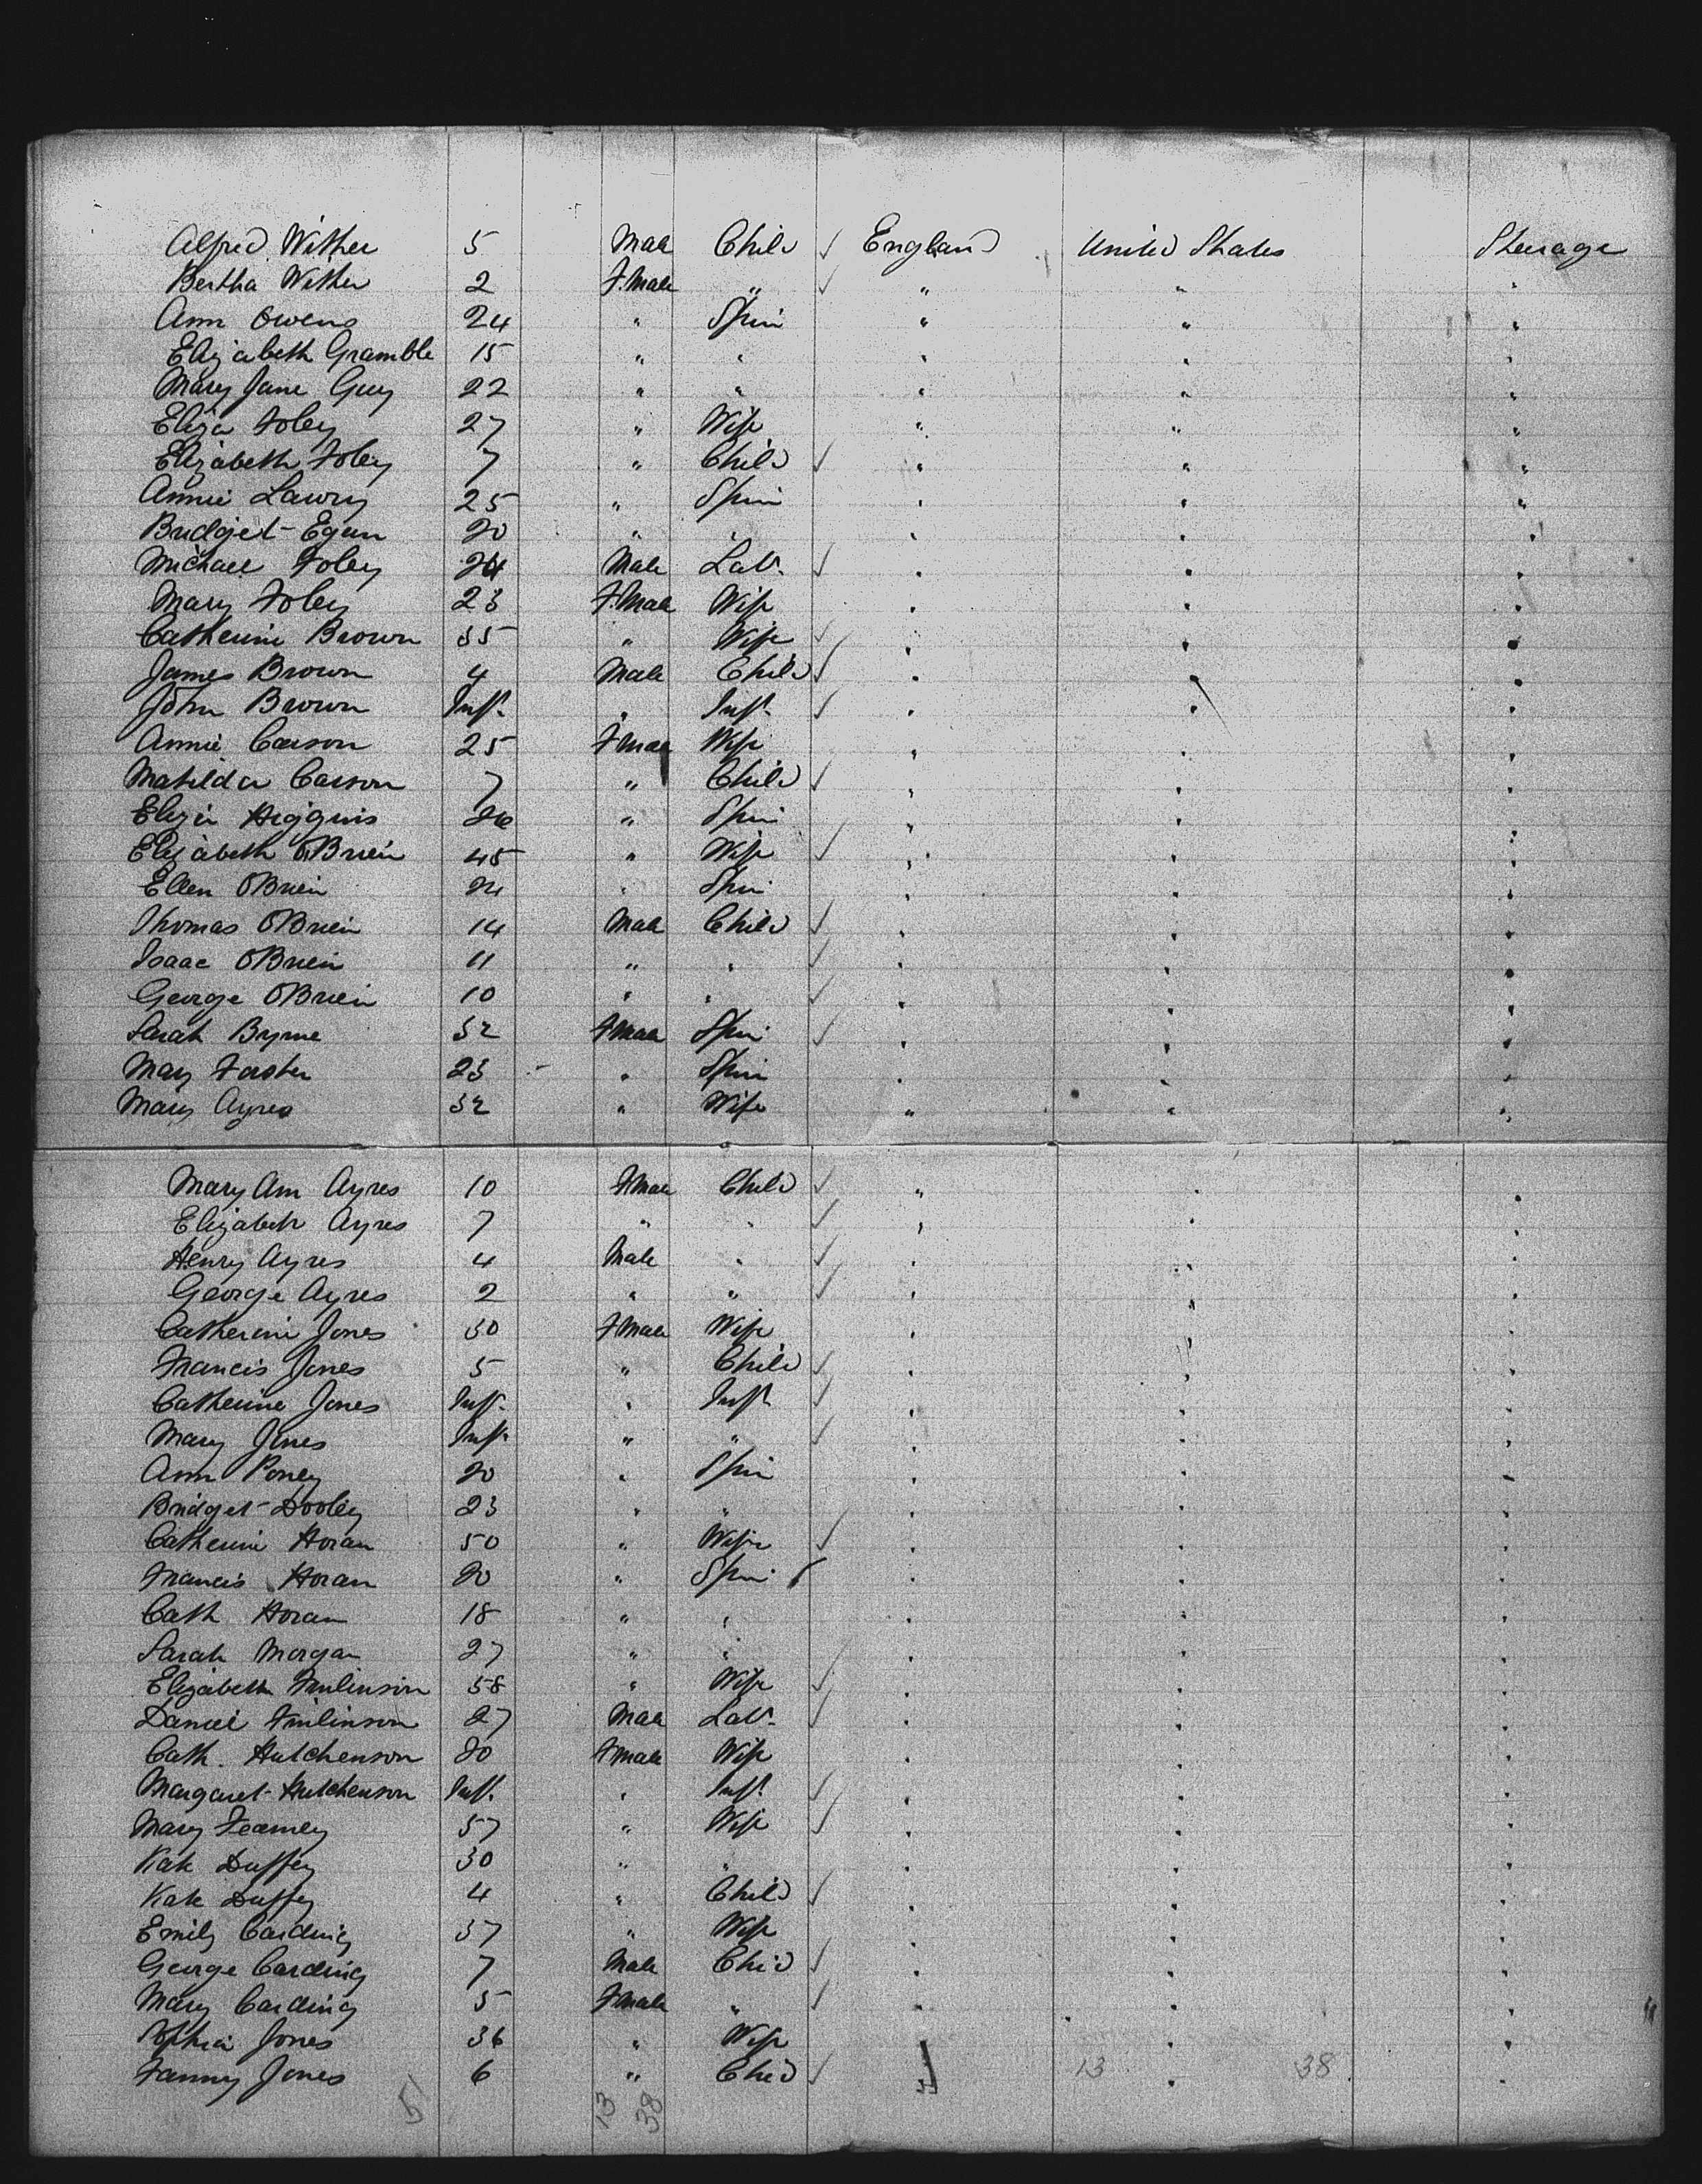 Alfred Wither 5 Male Child ✓ England United States Steerage
Bertha Wither 2 F.Male " ✓ " " "
Ann Owens 24 " Spin " " "
Elizabeth Gramble 15 " " " " "
Mary Jane Guy 22 " " " " "
Eliza Foley 27 " Wife " " "
Elizabeth Foley 7 " Child ✓ " " "
Annie Lawry 25 " Spin " " "
Bridget Egan 20 " " " " "
Michael Foley 24 Male Lab. ✓ " " "
Mary Foley 23 F.Male Wife " " "
Catherine Brown 35 " Wife ✓ " " "
James Brown 4 Male Child ✓ " " "
John Brown Inft. " Inft. ✓ " " "
Annie Carson 25 F Male Wife " " "
Matilda Carson 7 " Child ✓ " " "
Eliza Higgins 26 " Spin " " "
Elizabeth OBrien 45 " Wife ✓ " " "
Ellen OBrien 24 " Spin " " "
Thomas OBrien 14 Male Child ✓ " " "
Isaac OBrien 11 " " ✓ " " "
George OBrien 10 " " ✓ " " "
Sarah Byrne 32 F Male Spin ✓ " " "
Mary Forster 23 " Spin " " "
Mary Ayres 32 " Wife " " "
Mary Ann Ayres 10 F Male Child ✓ " " "
Elizabeth Ayres 7 " " ✓ " " "
Henry Ayres 4 Male " ✓ " " "
George Ayres 2 " " ✓ " " "
Catherine Jones 30 F Male Wife " " "
Francis Jones 5 " Child ✓ " " "
Catherine Jones Inft. " Inft ✓ " " "
Mary Jones Inft " " ✓ " " "
Ann 20 " Spin " " "
Bridget Dooley 23 " " " " "
Catherine Horan 50 " Wife ✓ " " "
Francis Horan 20 " Spin ✓ " " "
Cath Horan 18 " " " " "
Sarah Morgan 27 " " ✓ " " "
Elizabeth 58 " Wife ✓ " " "
Daniel 27 Male Lab. ✓ " " "
Cath. Hutchenson 20 F Male Wife " " "
Margaret Hutchenson Inft. " Inft ✓ " " "
Mary Fearney 57 " Wife ✓ " " "
Kate Duffey 30 " " " " "
Kate Duffey 4 " Child ✓ " " "
Emily Carding 37 " Wife " " "
George Carding 7 Male Chid ✓ " " "
Mary Carding 5 F Male " ✓ " " "
Sophia Jones 36 " Wife " " "
Fanny Jones 6 " Chid ✓ " 13 " 38 "
51 13 38